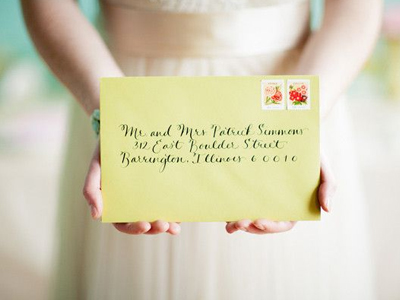 Mr and Mrs Patrick Simmons
312 East Boulder Street
Barrington, Illinois 60010